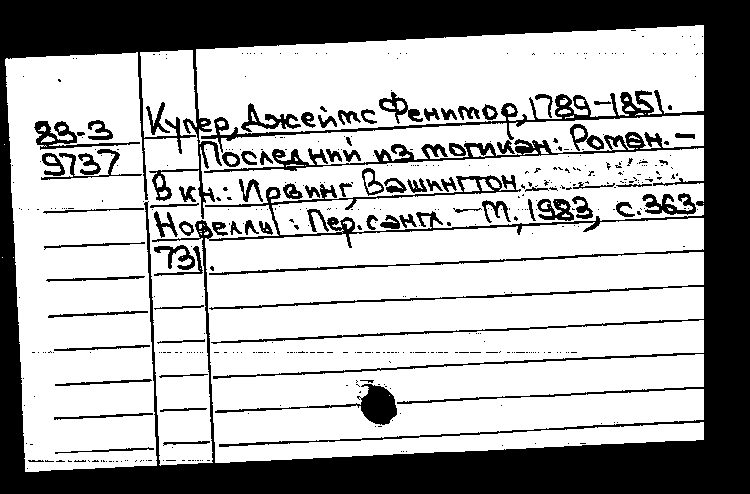 Купер, Джеймс Фенимор, 1789-1851.
83-3
9737
Последний из могикан: Роман. —
В кн.: Ирвинг, Вашингтон.
Новеллы: Пер. с англ. — М., 1983, с. 363-
731.